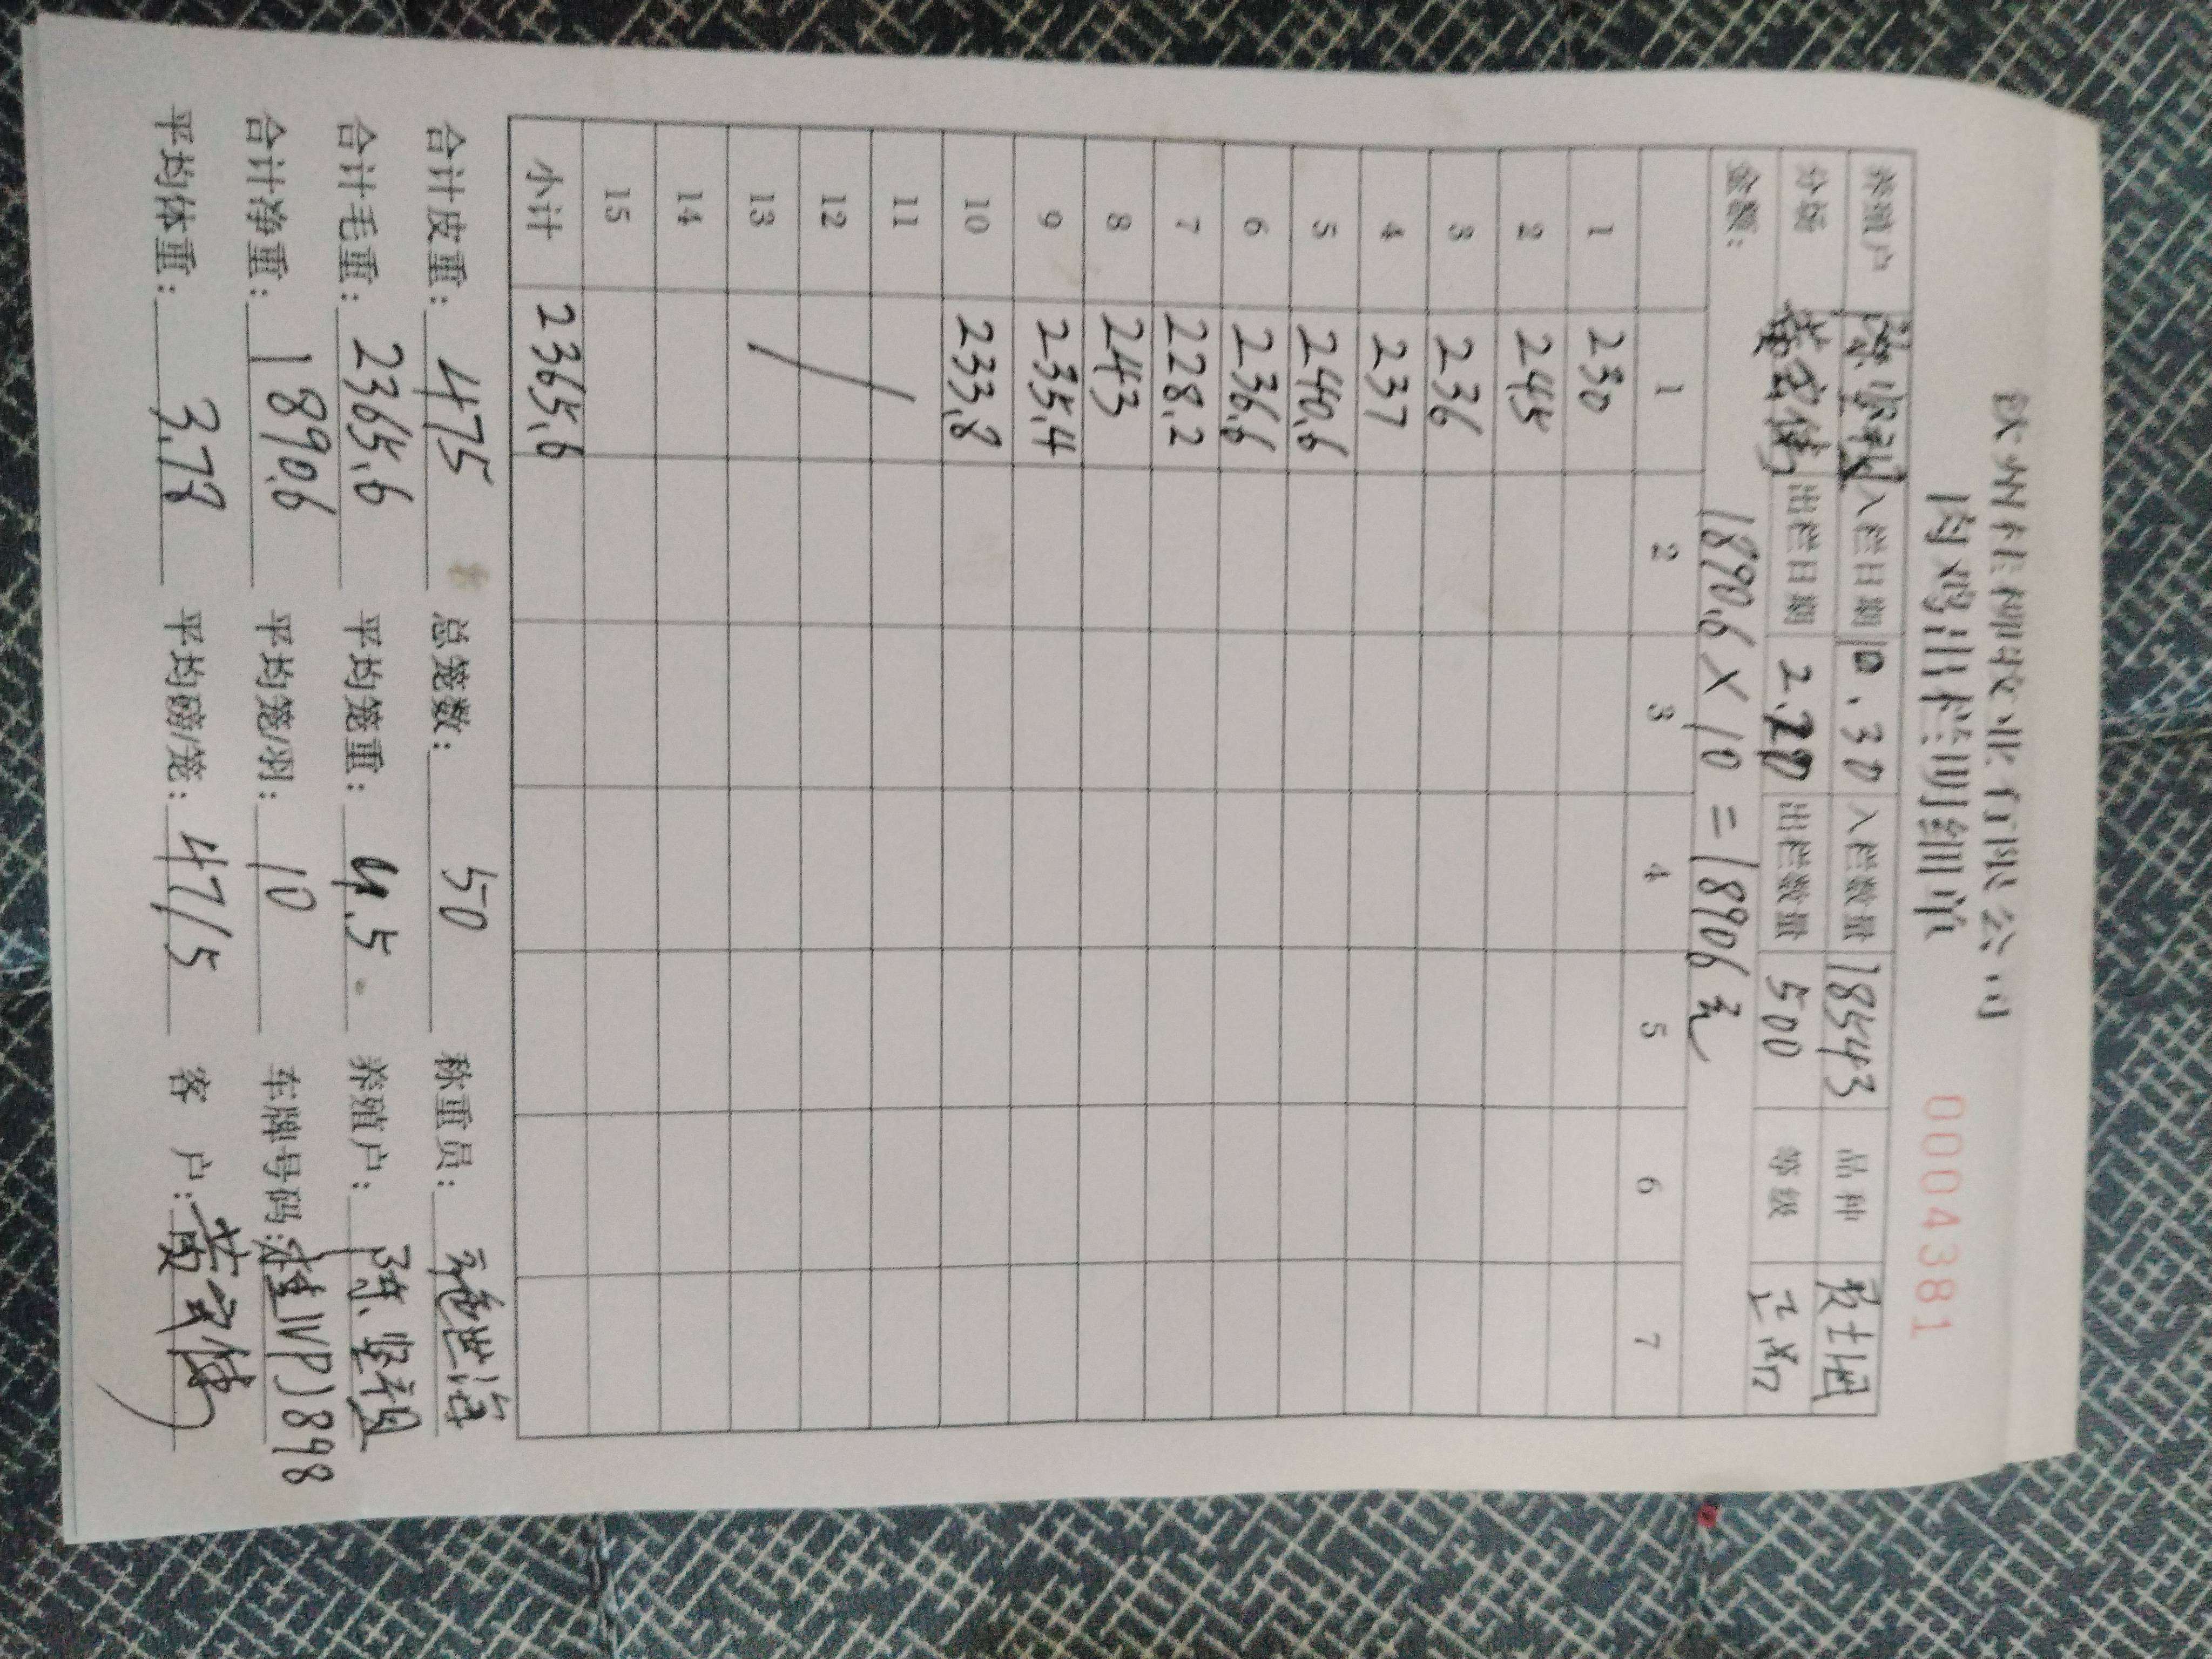 钦州桂柳牧业有限公司
肉鸡出栏明细单
0004381
养殖户 陈坚祝 入栏日期 10.30 入栏数量 18543 品种
分场 黄安倩 出栏日期 2.20 出栏数量 500 等级 正常
金额： 1890.6×10=18906元
1 2 3 4 5 6 7
1 230
2 245
3 236
4 237
5 240.6
6 236.6
7 228.2
8 243
9 235.4
10 233.8
11
12
13
14
15
小计 2365.6
合计皮重：475 总笼数：50 称重员：
合计毛重：2365.6 平均笼重：4.5 养殖户：陈坚
合计净重：1890.6 平均笼/羽：10 车牌号码：桂
平均体重：3.78 平均磅/笼：47/5 客户：黄